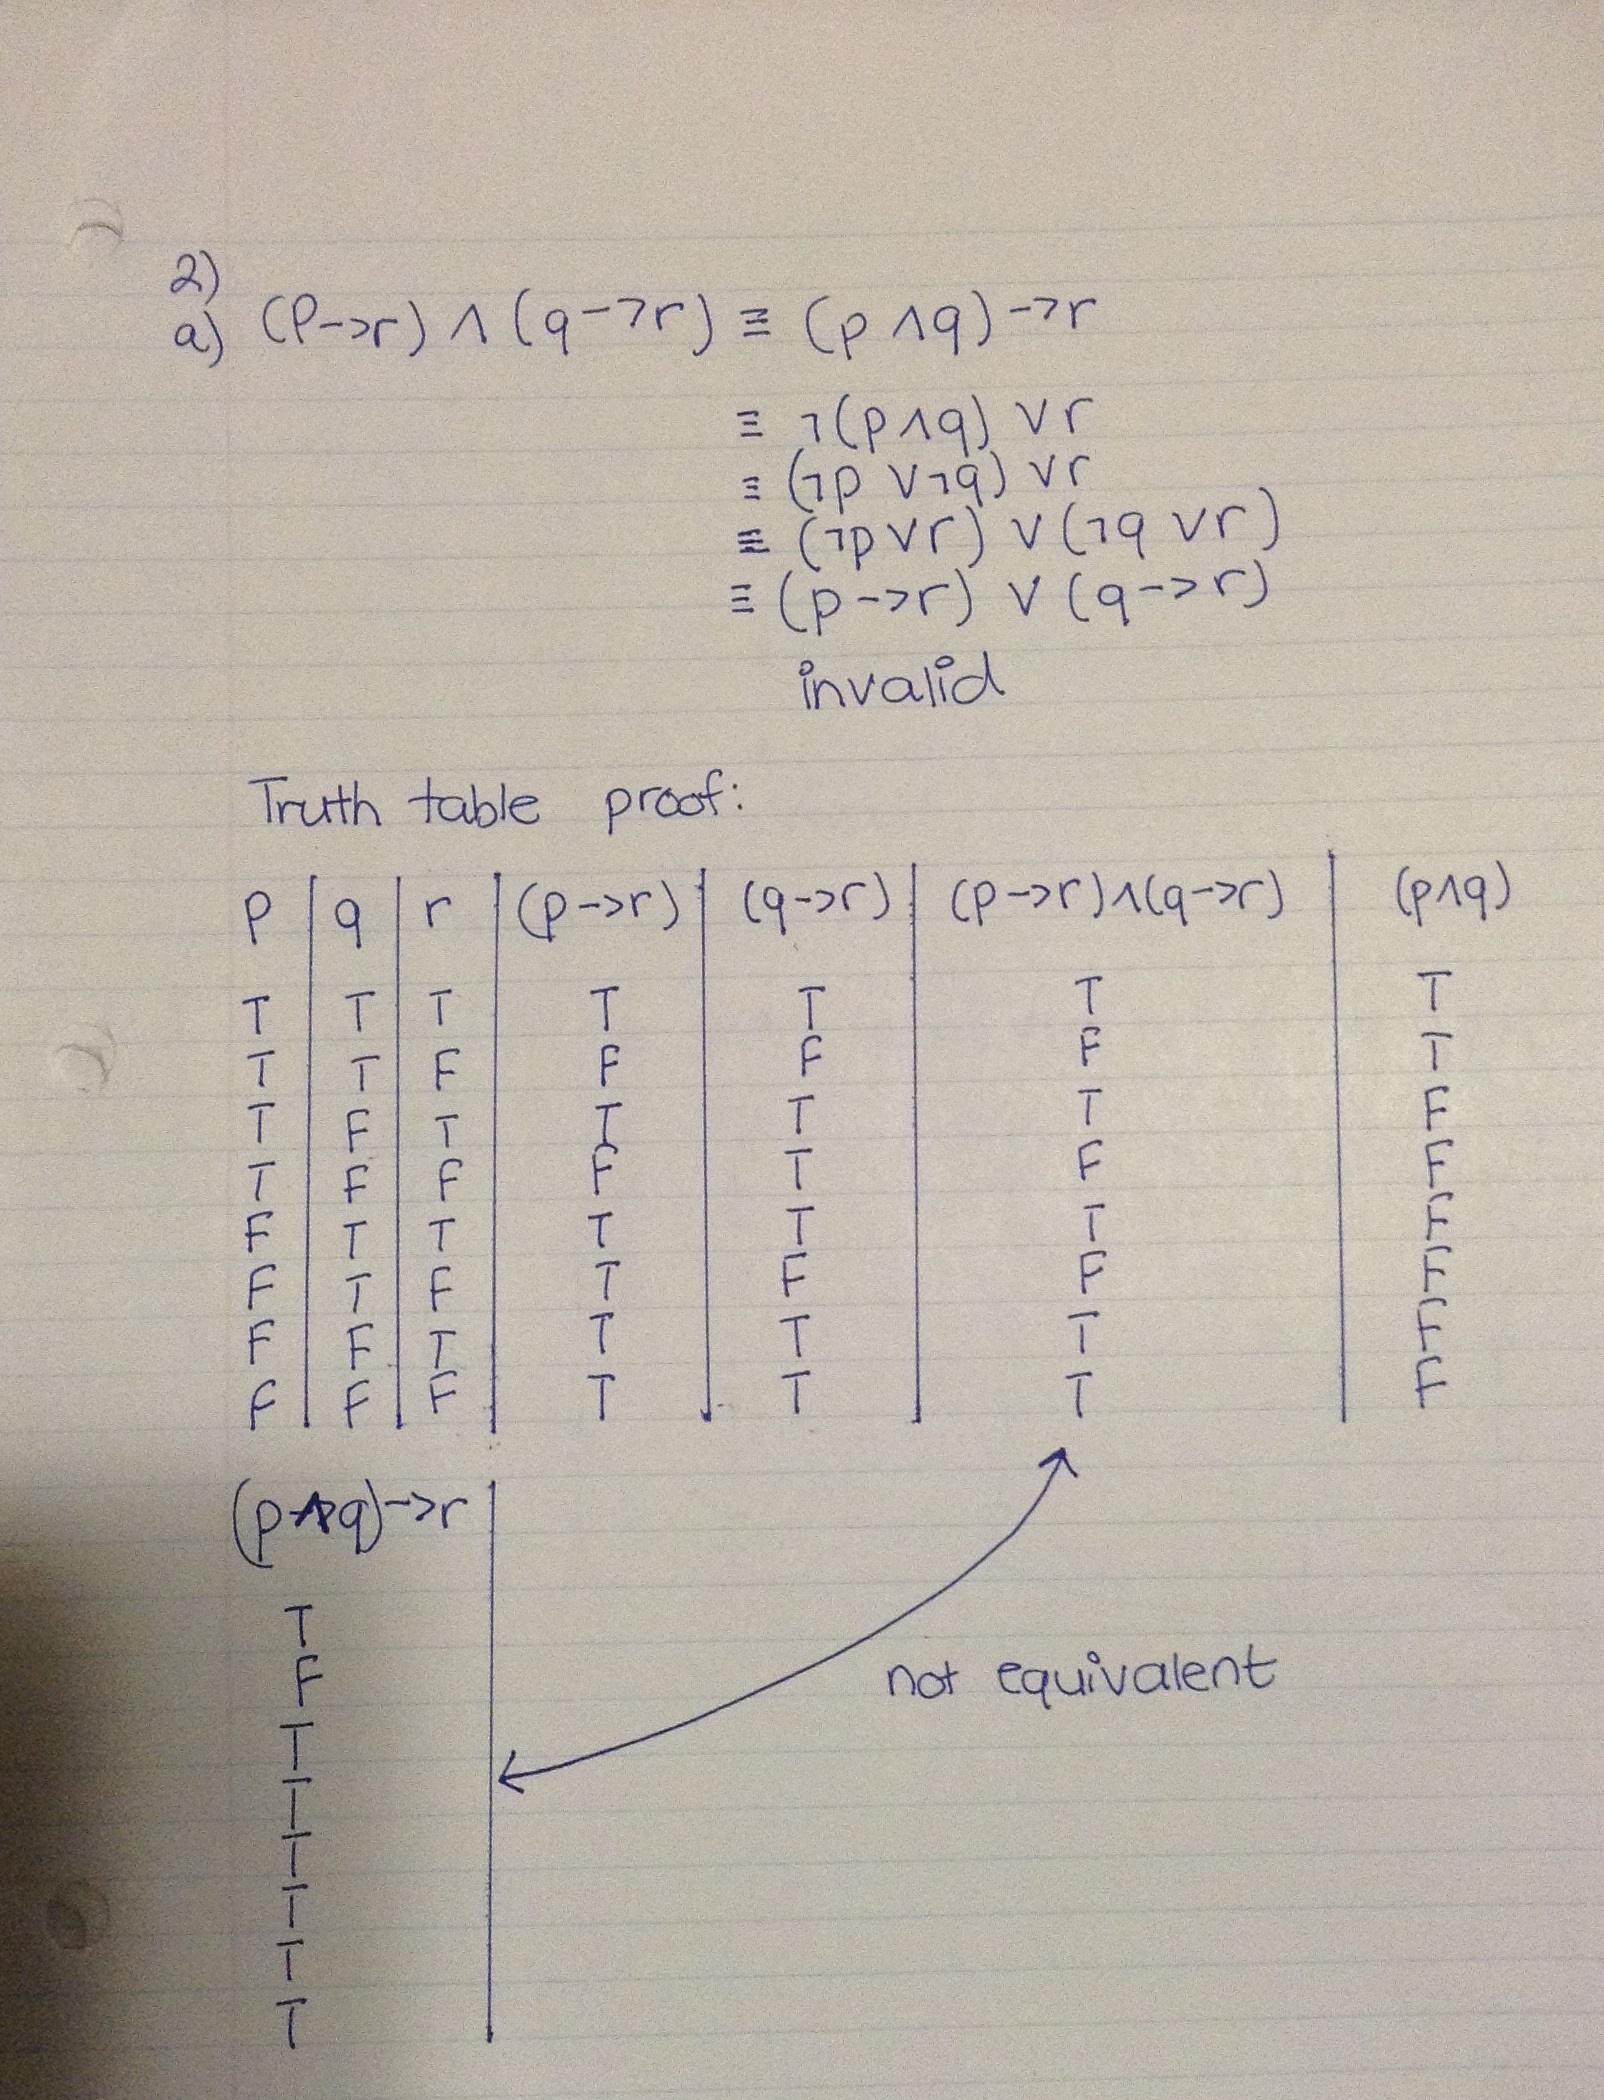 2)
a) (p->r) ∧ (q->r) ≡ (p ∧q) ->r
≡ ¬(p∧q) ∨ r
≡ (¬p ∨¬q) ∨r
≡ (¬p∨r) ∨ (¬q ∨r)
≡ (p->r) ∨ (q->r)
invalid
Truth table proof:
p | q | r | (p->r) | (q->r) | (p->r)∧(q->r) | (p∧q)
T T T T T T T
T T F F F F T
T F T T T T F
T F F F T F F
F T T T T T F
F T F T F F F
F F T T T T F
F F F T T T F
(p∧q)->r
T
F
T
T
T
T
T
T
not equivalent